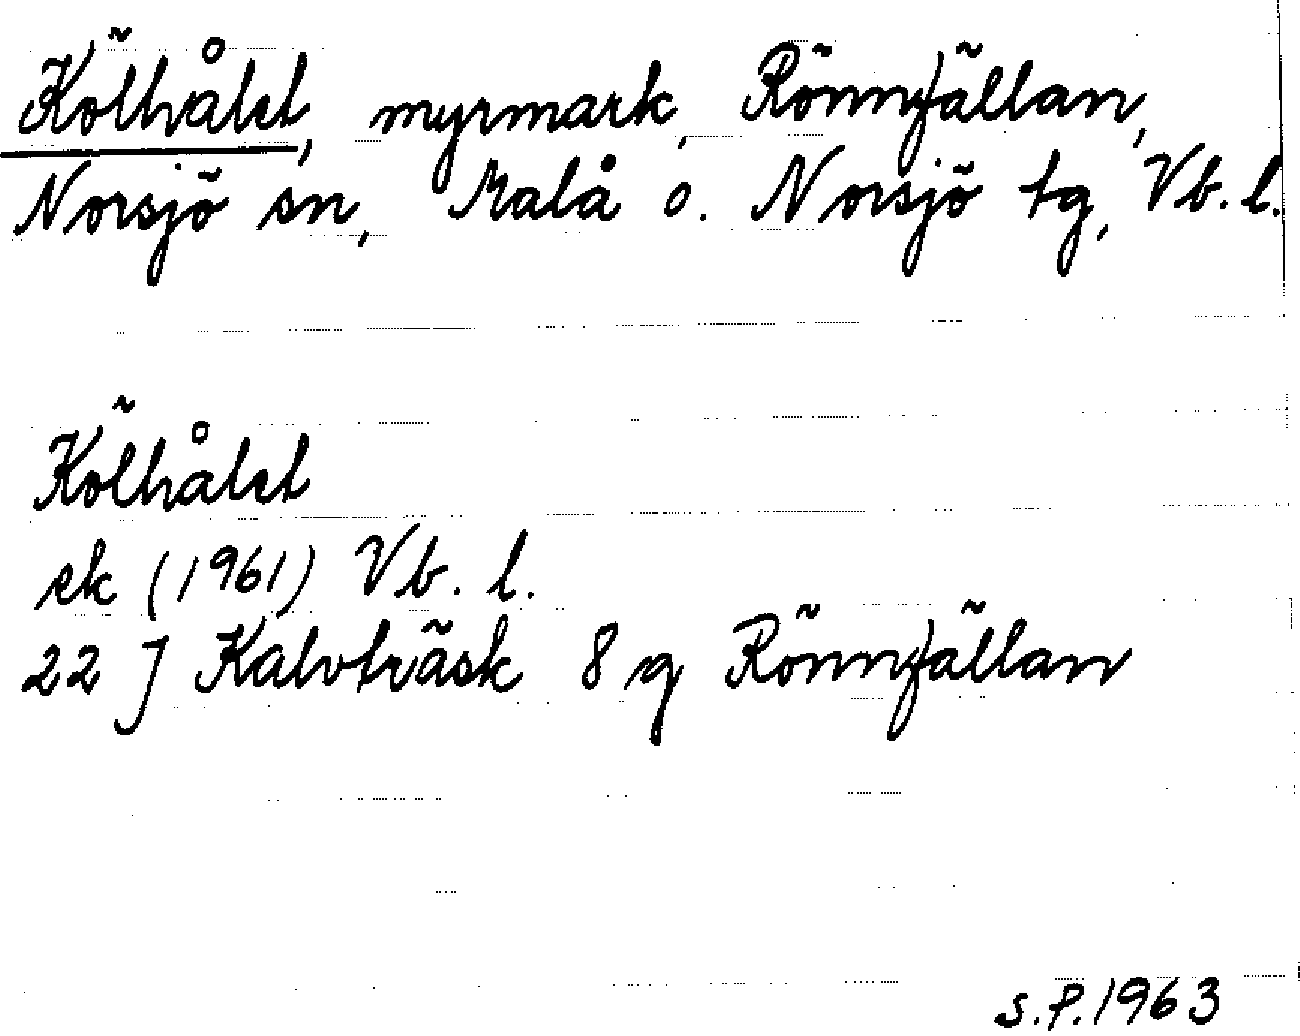 Kölhålet, myrmark, Rönnfällan,
Norsjö sn, Malå o. Norsjö tg, Vb. l.
Kölhålet
ek (1961) Vb. l.
22 J Kalvträsk 8 g Rönnfällan
S.P. 1963